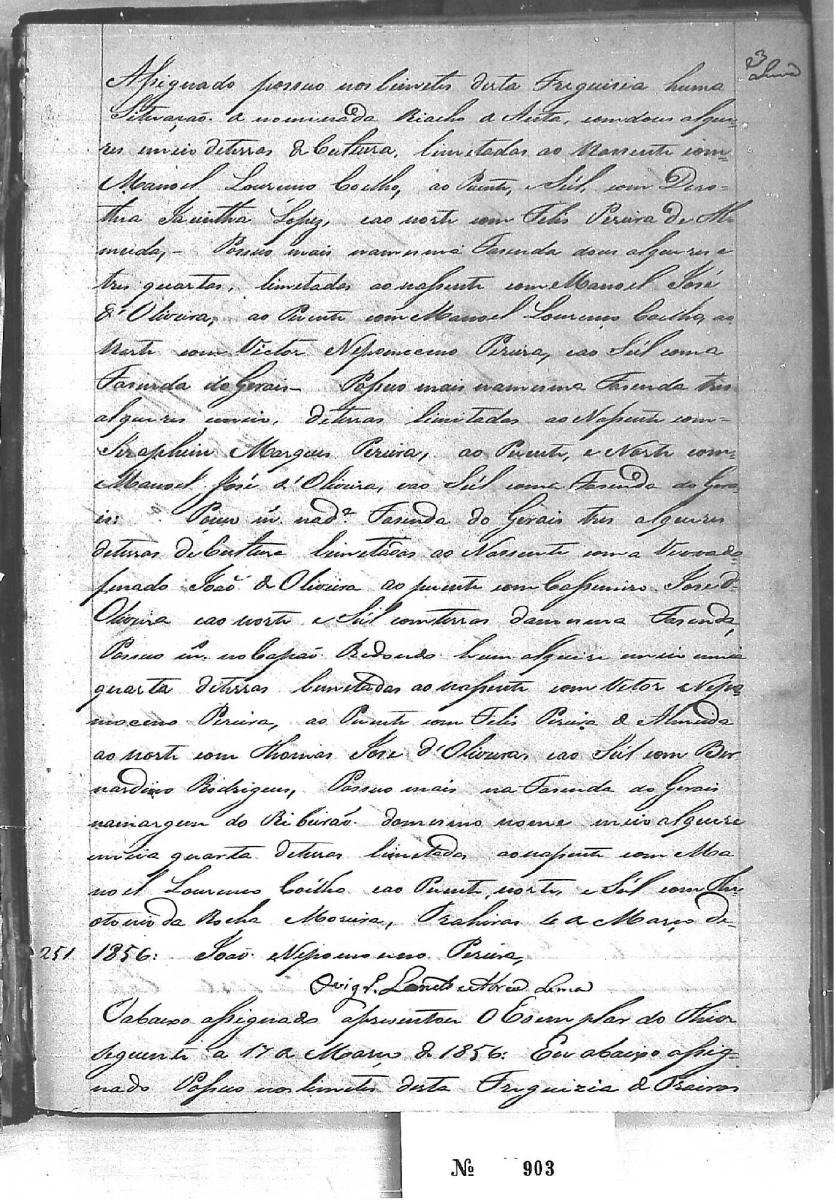 3
Lima
Assignado possuo nos limetes desta Freguisia huma
Situação denomenada Riacho d Anta, com dous alquei-
res e meio deterras de Cultura, limetadas ao Nassente com
Manoel Lourenço Coelho, ao Puente, e Súl, com Doro-
thea Jacintha Lopez, eao norte com Felis Pereira de Al
meida, - Possuo mais namesma Fasenda dous alqueires e
tres quartas, limetadas aonassente com Manoel José
d'Oliveira, ao Puente com Manoel Lourenço Coelho, ao
Norte com Victor Nepomoceno Pereira, eao Súl coma
Fasenda do Gerais - Possuo mais namesma Fasenda tres
alqueires emeio, deterras limetadas ao Nassente com
Seraphim Marques Pereira, ao Puente, e Norte com
Manoel José d'Oliveira, eao Súl coma Fasenda do Gera-
is: Possuo m. nad.ª Fasenda do Gerais tres alqueires
deterras de Cultura limetadas ao Nassente com a Viuvado
finado João de Oliveira ao puente com Cassemiro José d'
Oliveira eao norte e Súl com terras damesma Fasenda,
Possuo m. no Capão Redondo hum alqueire e meio emeia
quarta deterras limetadas ao nassente com Vitor Nepo-
moceno Pereira, ao Puente com Felis Pereira de Almeida
ao norte com Thomas José d'Oliveira, eao Súl com Ber
nardino Rodrigues, Possuo mais na Fasenda do Gerais
namargem do Ribeirão domesmo nome meio alqueire
emeia quarta deterras limetadas aonassente com Ma
noel Lourenço Coêlho eao Puente, norte, e Súl com An
otonio da Rocha Moreira, Prahiras 4 de Março de
251 1856: João Nepomoceno Pereira,
O vigr.º e Abreu Lima
O abaixo assignado apresentou O Exemplar do Theor
seguinte a 17 de Março de 1856: Eu abaixo assig-
nado Possuo nos limetes desta Freguizia de
Nº 903